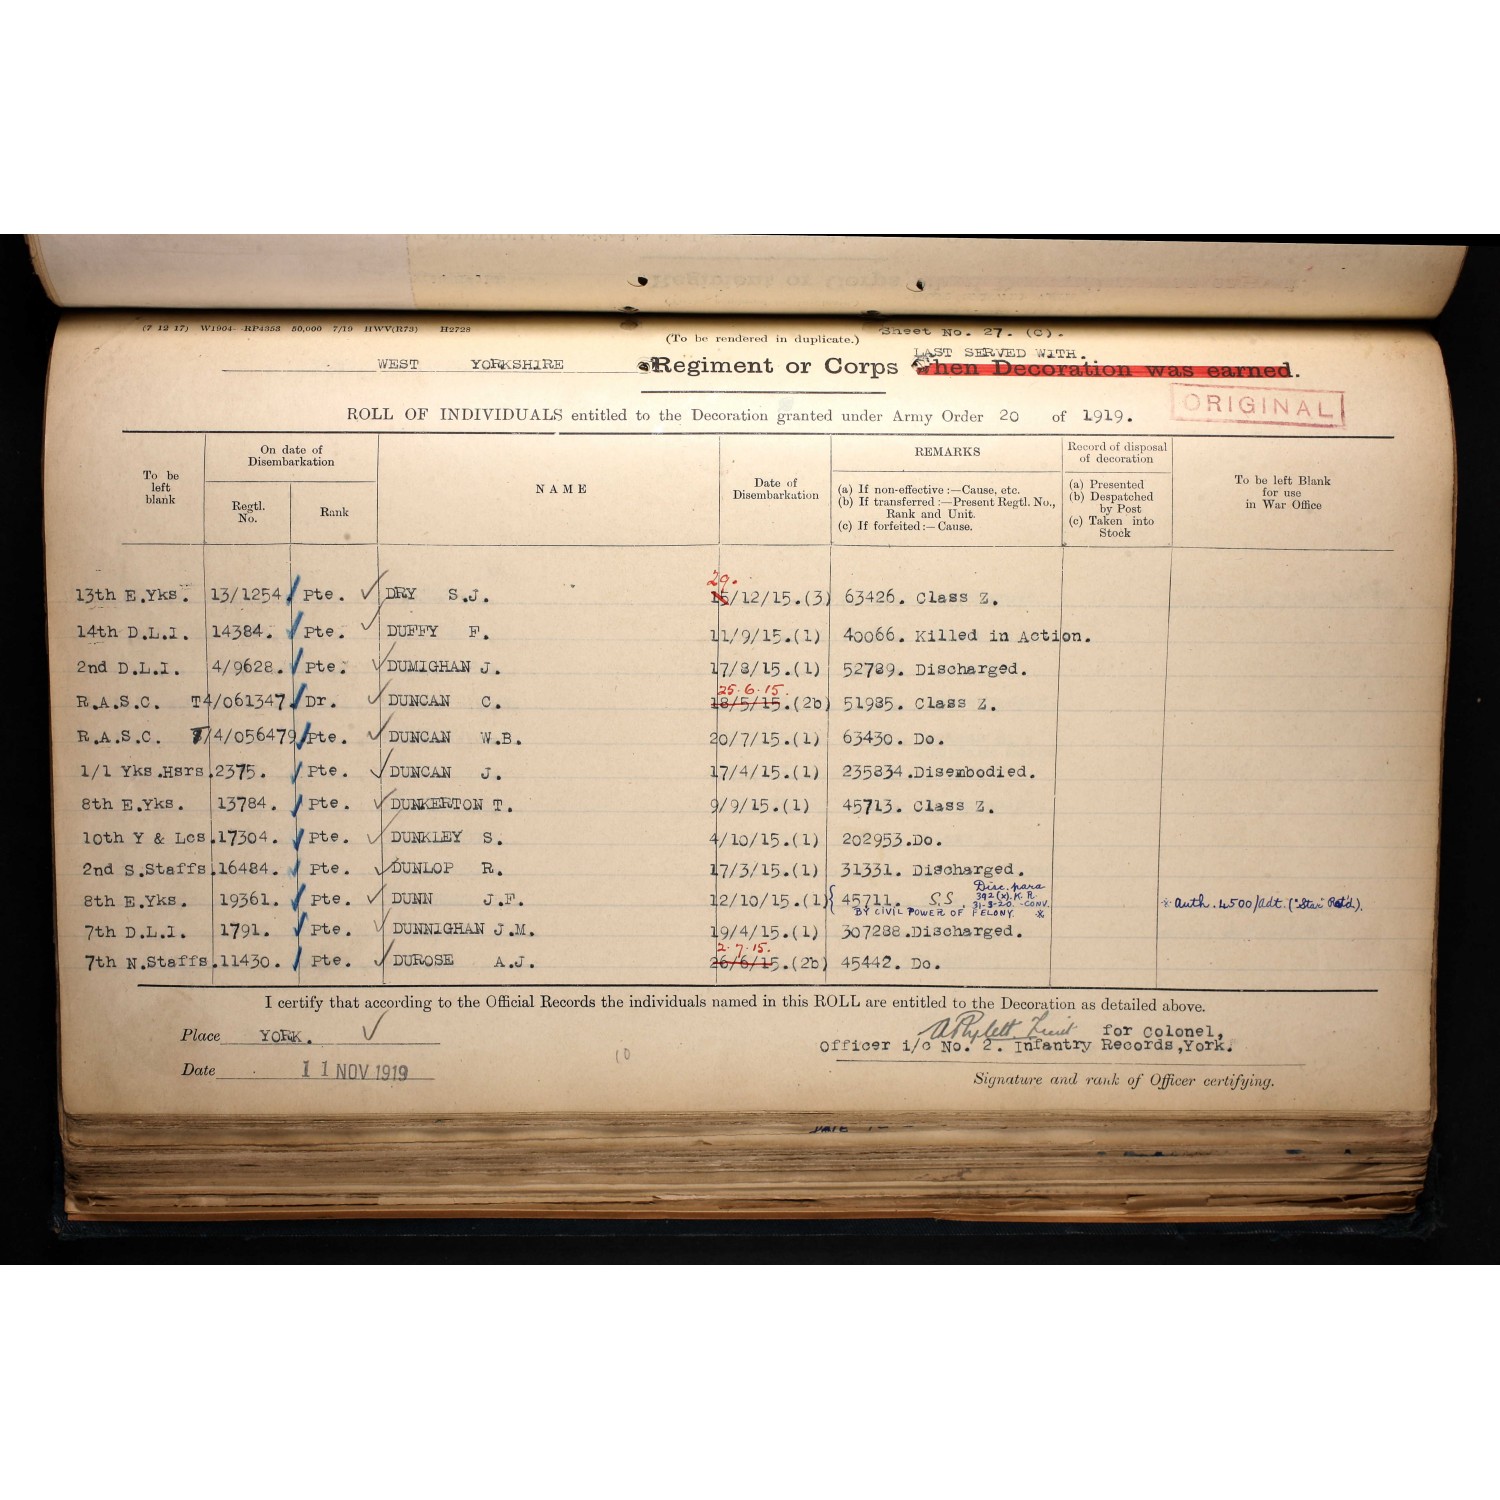 (7 12 17) W1904—RP4353 50,000 7/19 HWV(R73) H2728
Sheet No. 27. (C).
(To be rendered in duplicate.)
LAST SERVED WITH.
WEST YORKSHIRE Regiment or Corps when Decoration was earned.
ORIGINAL
ROLL OF INDIVIDUALS entitled to the Decoration granted under Army Order 20 of 1919.
To be left blank
On date of Disembarkation
Regtl. No.
Rank
NAME
Date of Disembarkation
REMARKS
(a) If non-effective :—Cause, etc.
(b) If transferred :—Present Regtl. No., Rank and Unit.
(c) If forfeited :—Cause.
Record of disposal of decoration
(a) Presented
(b) Despatched by Post
(c) Taken into Stock
To be left Blank for use in War Office
29.
13th E.Yks. 13/1254 Pte. DRY S.J. 15/12/15.(3) 63426. Class Z.
14th D.L.I. 14384. Pte. DUFFY F. 11/9/15.(1) 40066. Killed in Action.
2nd D.L.I. 4/9628. Pte. DUMIGHAN J. 17/8/15.(1) 52789. Discharged.
25.6.15.
R.A.S.C. T4/061347 Dr. DUNCAN C. 18/5/15.(2b) 51985. Class Z.
R.A.S.C. T/4/056479 Pte. DUNCAN W.B. 20/7/15.(1) 63430. Do.
1/1 Yks.Hsrs. 2375. Pte. DUNCAN J. 17/4/15.(1) 235834.Disembodied.
8th E.Yks. 13784. Pte. DUNKERTON T. 9/9/15.(1) 45713. Class Z.
10th Y & Lcs. 17304. Pte. DUNKLEY S. 4/10/15.(1) 202953.Do.
2nd S.Staffs. 16484. Pte. DUNLOP R. 17/3/15.(1) 31331. Discharged.
Disc. para
392(x).K.R.
8th E.Yks. 19361. Pte. DUNN J.F. 12/10/15.(1) 45711. S.S. 31-3-20. -CONV. * Auth. 4500/Adt. ("Star" Ret'd).
BY CIVIL POWER OF FELONY. *
7th D.L.I. 1791. Pte. DUNNIGHAN J.M. 19/4/15.(1) 307288.Discharged.
2.7.15.
7th N.Staffs. 11430. Pte. DUROSE A.J. 26/6/15.(2b) 45442. Do.
I certify that according to the Official Records the individuals named in this ROLL are entitled to the Decoration as detailed above.
Place YORK.
for Colonel,
Officer i/c No. 2. Infantry Records,York.
10
Date 11 NOV 1919
Signature and rank of Officer certifying.